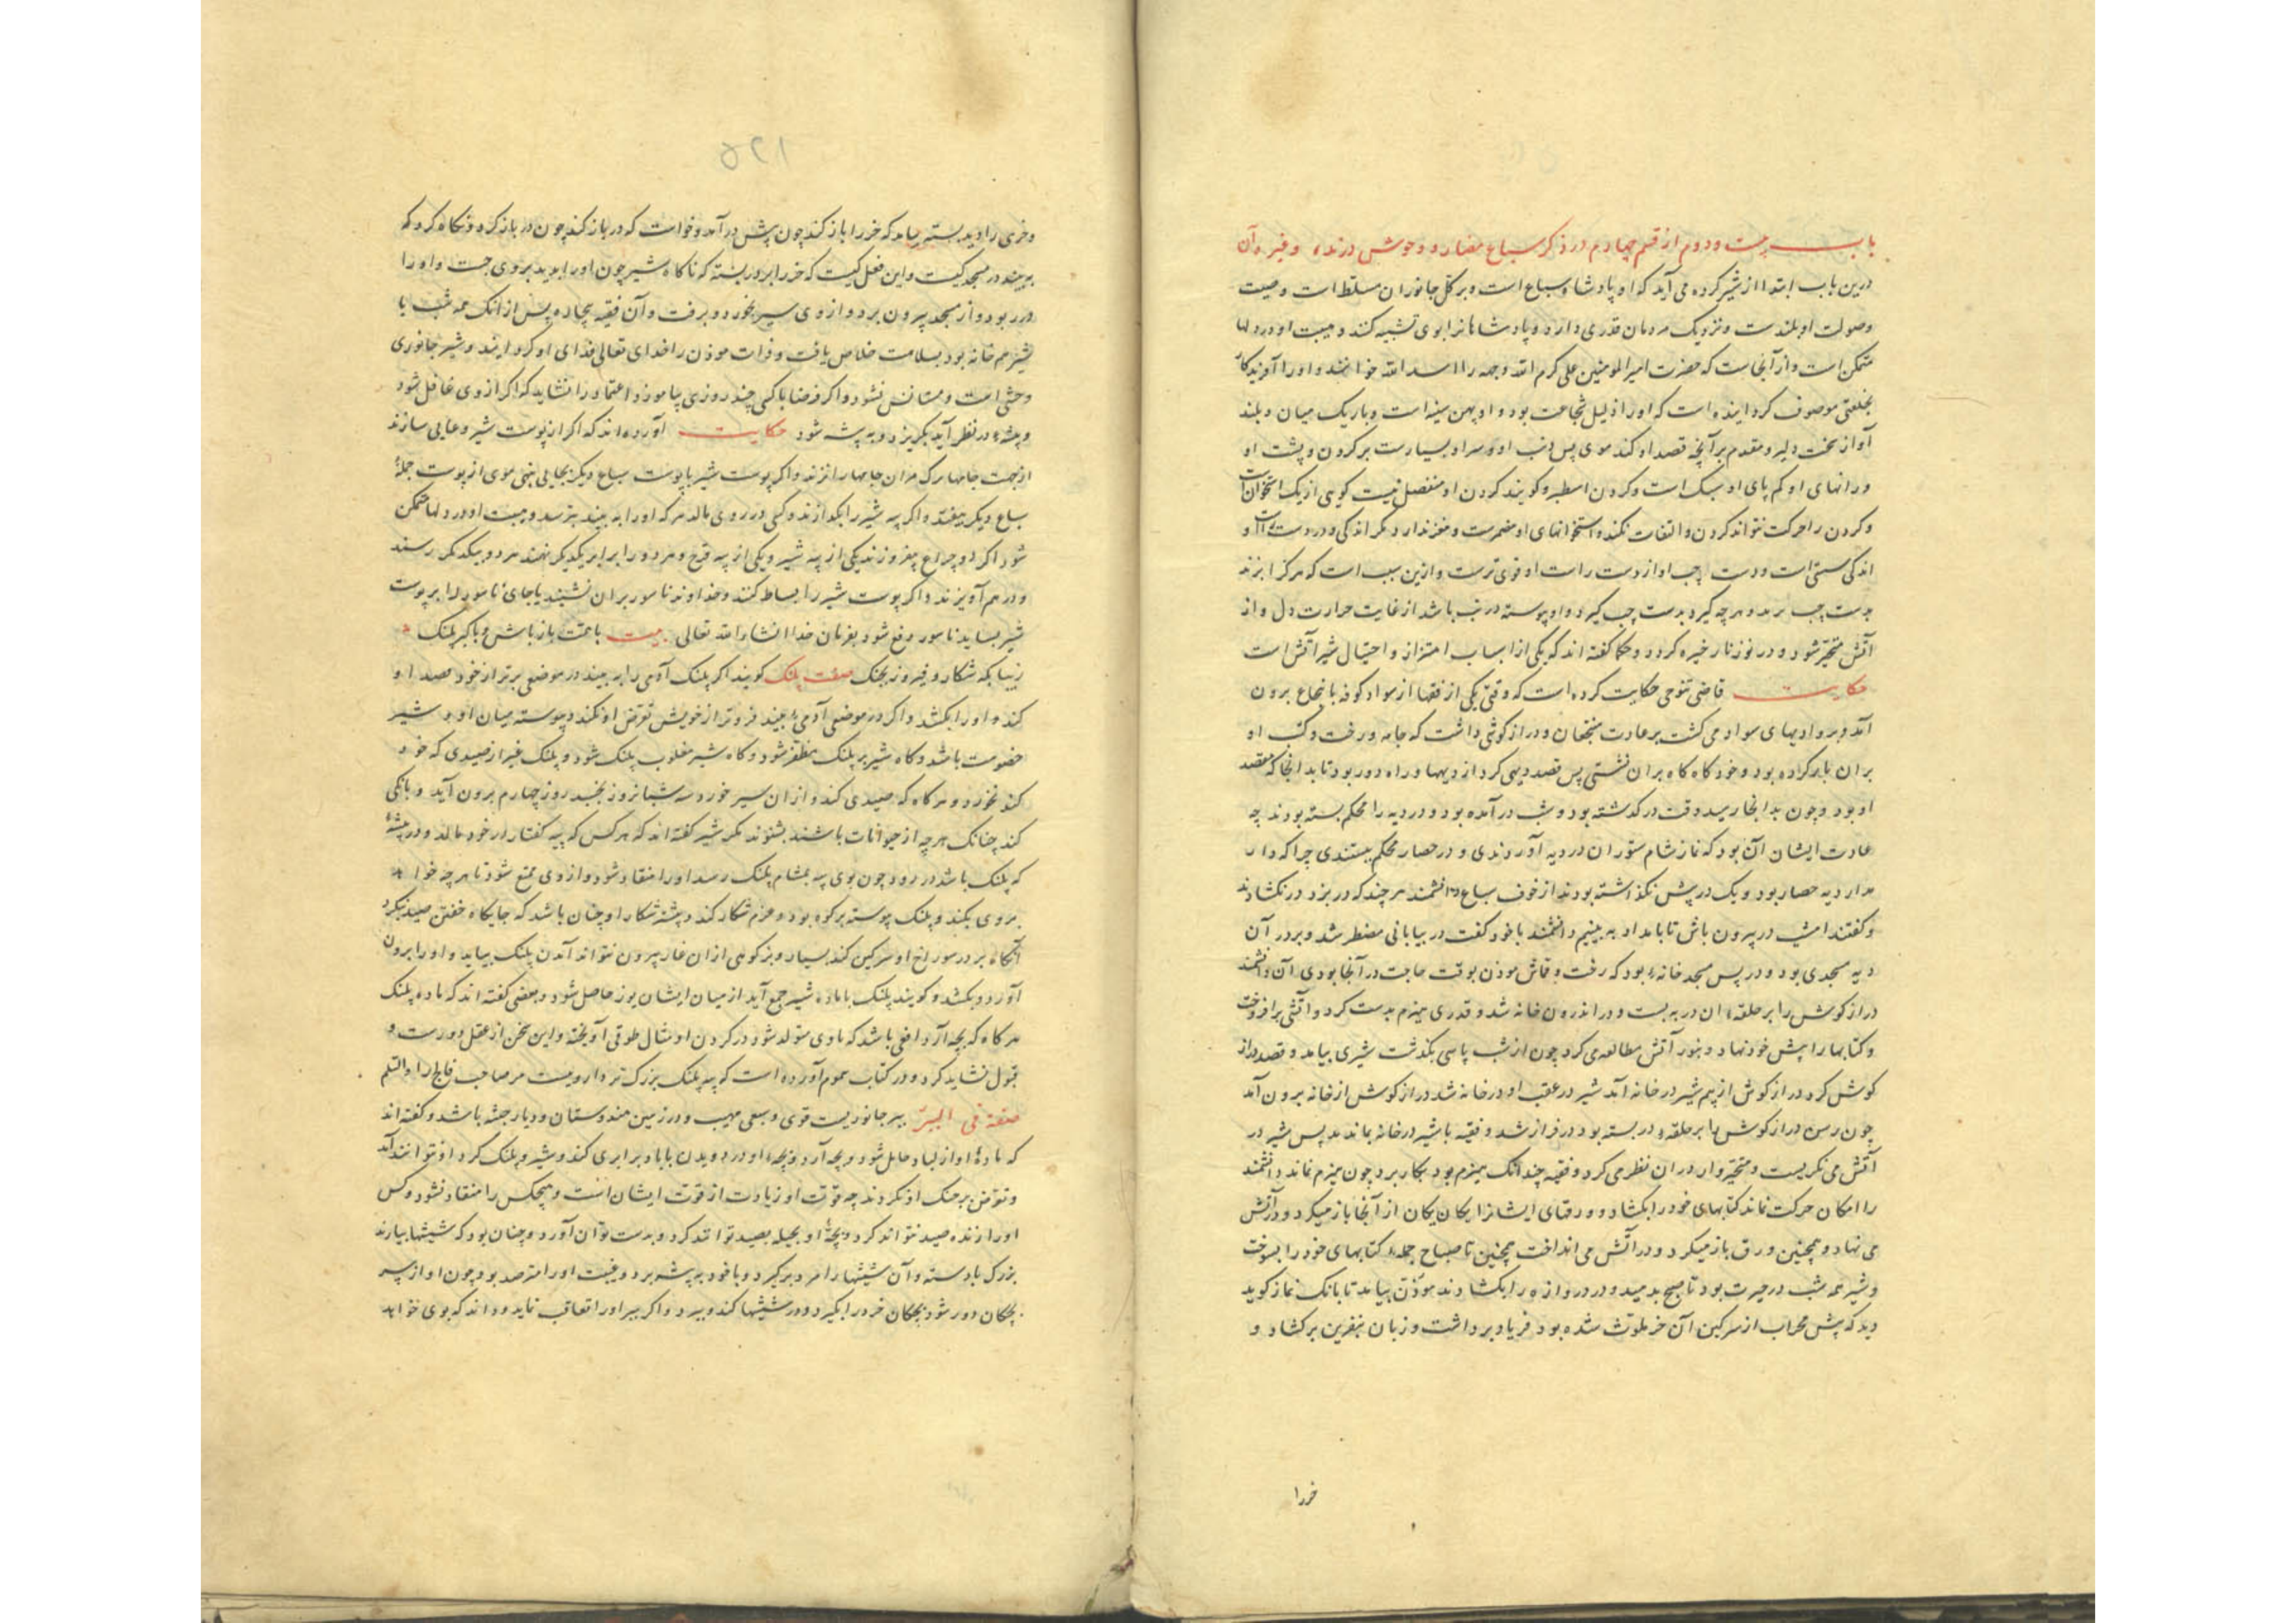 باب بیست و دوم از قسم چهارم در ذکر سباع مضاره و وحوش درنده و غیر آن
درین باب ابتدا از شیر کرده می آید که او پادشاه سباع است و بر کل جانوران مسلط است و صیت
و صولت او بلندست و نزدیک مردمان قدری دارد و پادشاهانرا بوی تشبیه کنند و هیبت او در دلها
متمکن است و از آنجاست که حضرت امیرالمومنین علی کرم الله وجهه را اسد الله خوانند و او را آفریدگار
بخلعتی موصوف گردانیده است که او را دلیل شجاعت بود و او پهن سینه است و باریک میان و بلند
آواز سخت دلیر و مقدم بر آنچه قصد او کند موی پس و سر او بسیارست بر گردن و پشت او
و رانهای او کم پای او سبک است و گردن اسطبر و گویند گردن او منفصل نیست گویی از یک استخوانست
و گردن را حرکت نتواند کردن و التفات نکند و استخوانهای او مضمرست و مغز ندارد مگر اندکی و در دست راست او
اندکی سستی است و دست چپ او از دست راست او قوی ترست و ازین سبب است که هر کرا بزند
بدست چپ بزند و هر چه گیرد بدست چپ گیرد و او پیوسته در تب باشد از غایت حرارت دل و از
آتش متحیر شود و در نور نار خیره گردد و حکما گفته اند که یکی از اسباب احتراز و احتیال شیر آتش است
حکایت قاضی تنوخی حکایت کرده است که وقتی یکی از فقها از سواد کوفه بانجاع برون
آمد و بر وادیهای سواد می گشت بر عادت منتجعان و درازگوشی داشت که جامه و رخت و کتب او
بران بار کرده بود و خود گاه گاه بران نشستی پس قصد دیهی کرد از دیهها و راه دور بود تا بد انجا که مقصد
او بود و چون بدانجا رسید وقت درگذشته بود و شب در آمده بود و در دیه را محکم بسته بودند چه
عادت ایشان آن بود که نماز شام ستوران در دیه آوردندی و در حصار محکم ببستندی چرا که دار
مدار دیه حصار بود و یک در پیش نگذاشته بودند از خوف سباع دانشمند هر چند که در بزد در نگشادند
و گفتند امشب در بیرون باش تا بامداد به بینیم دانشمند با خود گفت در بیابانی مضطر شد و بر در آن
دیه مسجدی بود و در پس مسجد خانه بود که رخت و قماش موذن بوقت حاجت در آنجا بودی آن دانشمند
درازگوش را بر حلقه ان در به بست و در اندرون خانه شد و قدری هیزم بدست کرد و آتشی برافروخت
و کتابها را پیش خود نهاد و بنور آتش مطالعه می کرد چون از شب پاسی بگذشت شیری بیامد و قصد دراز
گوش کرد درازگوش از بیم شیر در خانه آمد شیر در عقب او در خانه شد درازگوش از خانه برون آمد
چون رسن درازگوش را بر حلقه در بسته بود در فراز شد و فقیه با شیر در خانه بماند پس شیر در
آتش می نگریست و متحیروار در ان نظر می کرد و فقیه چندانک هیزم بود بکار برد چون هیزم نماند دانشمند
را امکان حرکت نماند کتابهای خود را بگشاد و ورقهای ایشانرا یکان یکان از آنجا باز میکرد و در آتش
می نهاد و همچنین ورق باز میکرد و در آتش می انداخت همچنین تا صباح جمله کتابهای خود را بسوخت
و شیر همه شب در حیرت بود تا صبح بدمید و در دروازه را بگشادند موذن بیامد تا بانک نماز گوید
دید که پیش محراب از سرگین آن خر ملوث شده بود فریاد برداشت و زبان بنفرین برکشاد و
خر را
۱۲۵
و خری را دید بسته بیامد که خر را باز کند چون پیش در آمد و خواست که در باز کند چون در باز کرد و نگاه کرد که
ببیند در مسجد کیست و این فعل کیست که خر را بر در بسته که ناگاه شیر چون او را بدید بر وی جست و او را
در ربود و از مسجد بیرون برد و از وی سیر بخورد و برفت و آن فقیه بیچاره پس از انک همه شب با
شیر هم خانه بود بسلامت خلاص یافت و ذات موذن را خدای تعالی فدای او گردانید و شیر جانوری
وحشی است و مستانس نشود و اگر فرضا با کسی چند روزی بیاموزد اعتماد را نشاید که اگر از وی غافل شود
و بیشه در نظر آید بگریزد و به بیشه شود حکایت آورده اند که اگر از پوست شیر وعایی سازند
از جهت جامها کرک مران جامها را نزند و اگر پوست شیر با پوست سباع دیگر بجایی نهی موی از پوست جمله
سباع دیگر بیفتد و اگر پیه شیر را بگدازند و کسی در روی مالد هر که او را به بیند بترسد و هیبت او در دلها متمکن
شود اگر دو چراغ بیفروزند یکی از پیه شیر و یکی از پیه و هر دو را برابر یکدیگر نهند هر دو بیکدیگر رسند
و در هم آویزند و اگر پوست شیر را بساط کنند و خداوند ناسور بران نشیند یا جای ناسور را بر پوست
شیر بساید ناسور دفع شود بفرمان خدا انشاء الله تعالی بیت با همت باز باش و با کبر پلنک
زیبا بگه شکار و فیروز بجنک صفت پلنک گویند اگر پلنک آدمی را به بیند در موضعی برتر از خود قصد او
کند و او را بکشد و اگر در موضعی آدمی را بیند فروتر از خویش تعرض او نکند و پیوسته میان او و شیر
خصومت باشد و گاه شیر بر پلنک مظفر شود و گاه شیر مغلوب پلنک شود و پلنک غیر از صیدی که خود
کند نخورد و هر گاه که صیدی کند و از ان سیر خورد سه شبانروز بخسبد روز چهارم برون آید و بانکی
کند چنانک هر چه از حیوانات باشند بشنوند مگر شیر گفته اند که هر کس که پیه کفتار در خود مالد و در بیشه
که پلنک باشد در رود چون بوی پیه بمشام پلنک رسد او را منقاد شود و از وی ممتنع شود تا هر چه خواهد
بر وی بکند و پلنک پیوسته بر کوه بود و عزم شکار کند و بیشتر شکار او چنان باشد که جایگاه خفتن صید بگیرد
آنگاه بر در سوراخ او سرگین کند بسیار و بز کوهی از ان غار بیرون نتواند آمدن پلنک بیاید و او را برون
آورد و بکشد و گویند پلنک با ماده شیر جمع آید از میان ایشان یوز حاصل شود و بعضی گفته اند که ماده پلنک
هر گاه که بچه آرد افعی باشد که با وی متولد شود در گردن او مثال طوقی آویخته و این سخن از عقل دورست و
قبول نشاید کرد و در کتاب سموم آورده است که پیه پلنک بزرک تر دارویست مر صاحب فالج را والسلم
صفة فی الببر ببر جانوریست قوی و سبعی مهیب و در زمین هندوستان و دیار حبشه باشد و گفته اند
که ماده او از باد حامل شود و بچه آرد و بچه او در دویدن با باد برابری کند و شیر و پلنک گرد او نتوانند آمد
و تعرض بر جنک او نکردند چه قوت او زیادت از قوت ایشان است و هیچکس را منقاد نشود و کس
او را زنده صید نتواند کرد و بچه او بحیله بصید توانند کرد و بدست توان آورد و چنان بود که شیشها بیارند
بزرک با دسته و آن شیشها را مرد برگیرد و با خود به بیشه برد و غیبت او را مترصد بود چون او از پیش
بچگان دور شود بچگان خرد را بگیرد و در شیشها کند و ببرد و اگر ببر او را تعاقب نماید و داند که بوی خواهد